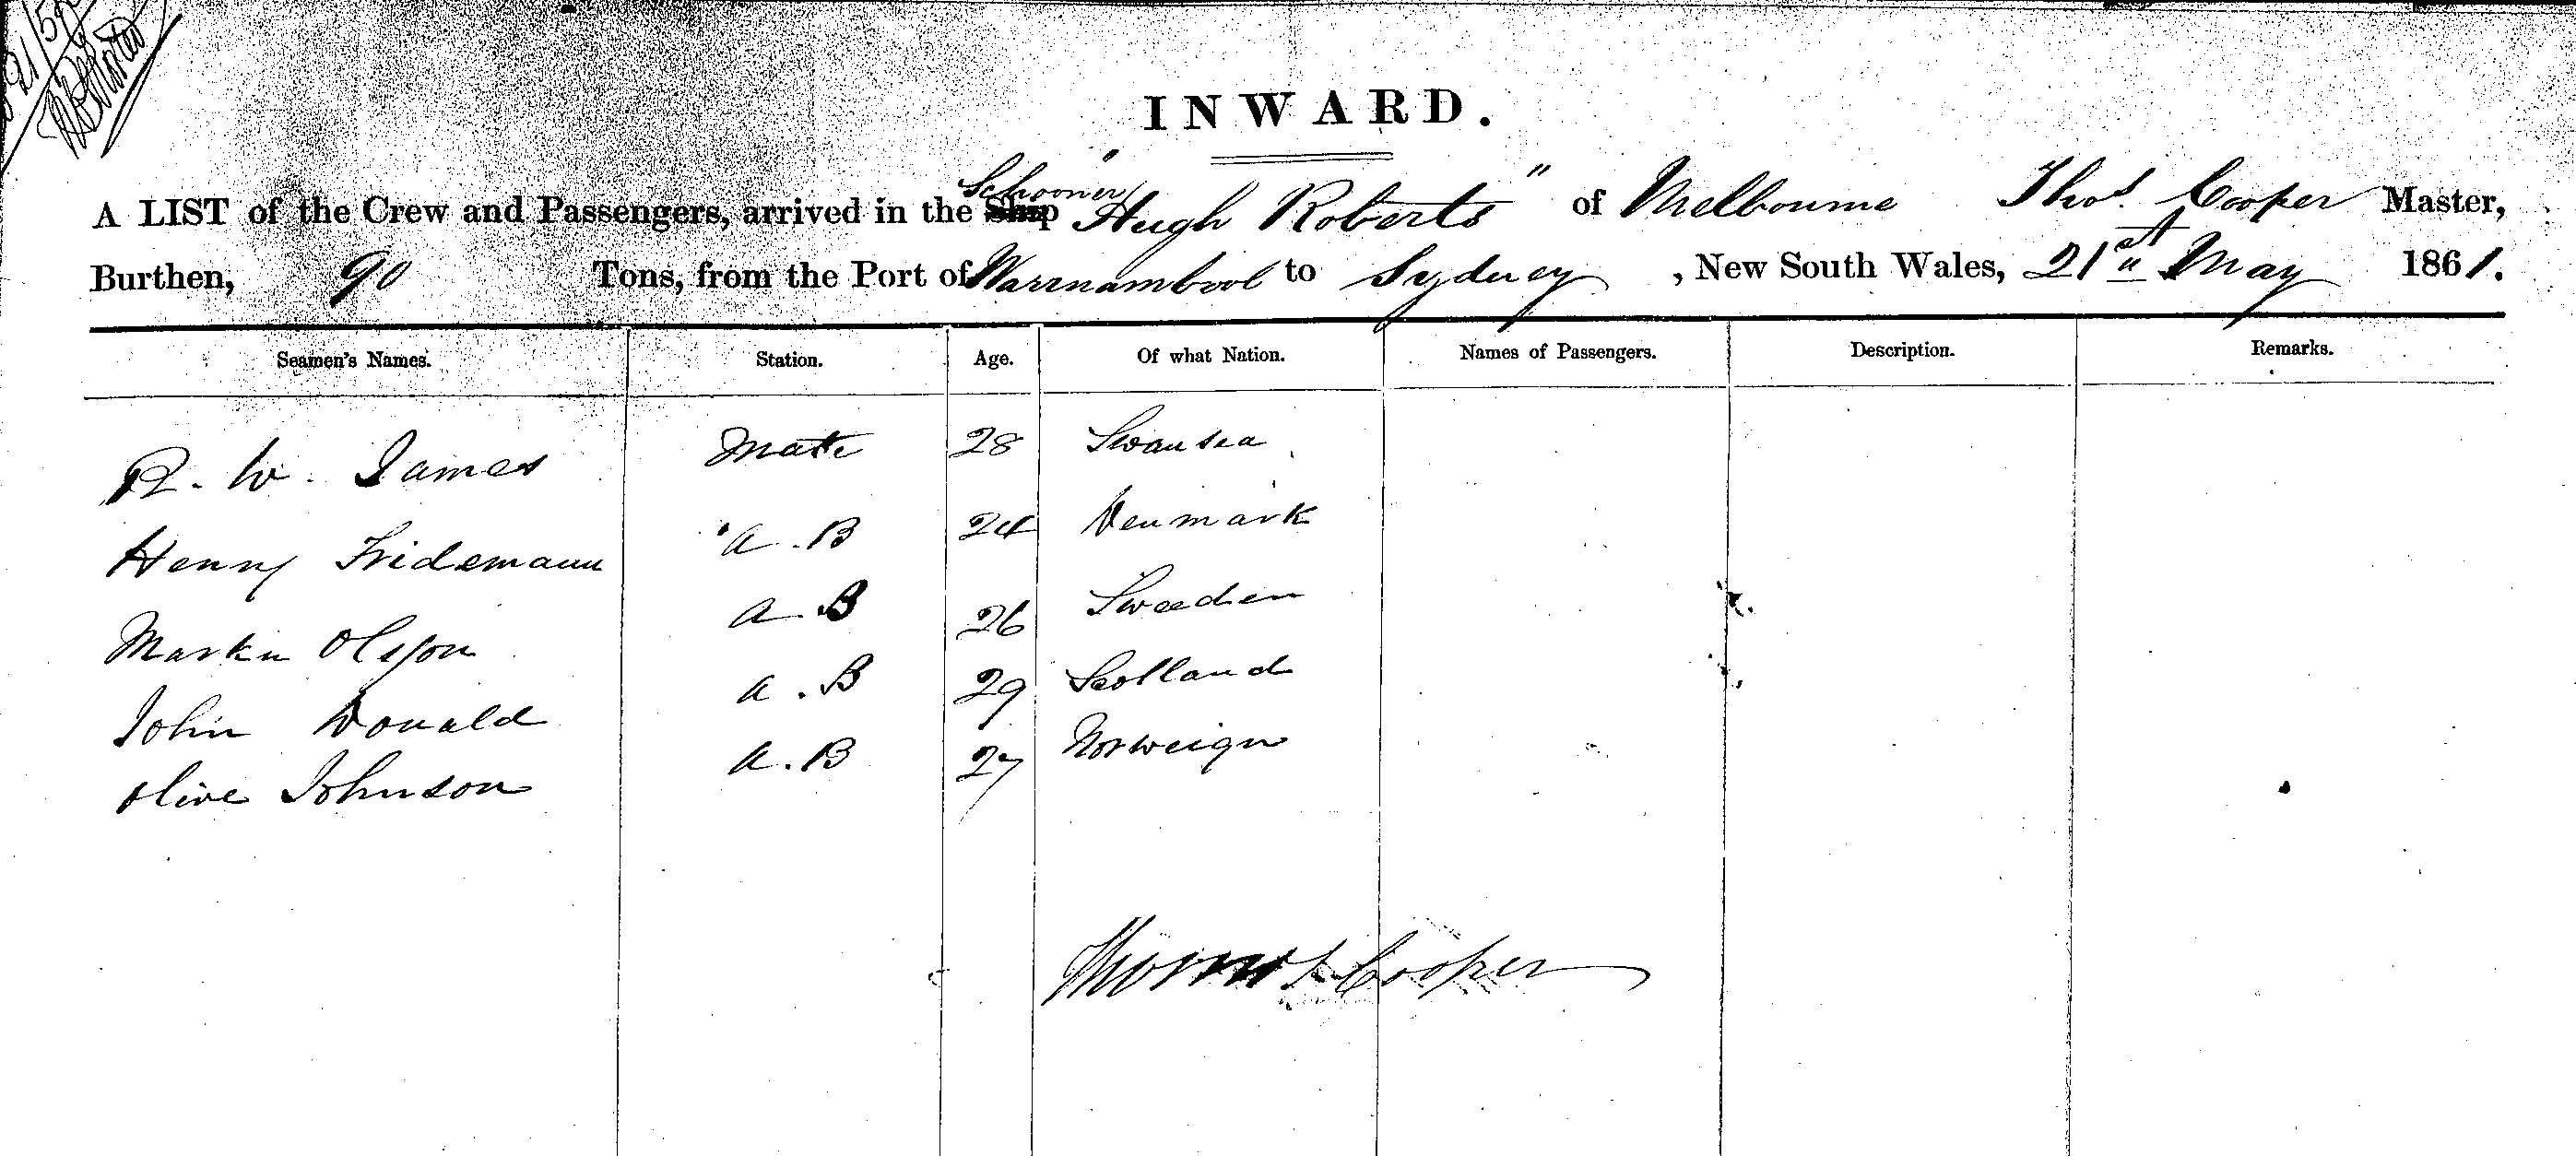 INWARD.
A LIST of the Crew and Passengers, arrived in the Ship Schooner "Hugh Roberts" of Melbourne Thos. Cooper Master,
Burthen, 90 Tons, from the Port of Warrnambool to Sydney, New South Wales, 21st May 1861.
Seamen's Names. Station. Age. Of what Nation. Names of Passengers. Description. Remarks.
R. W. James Mate 28 Swansea
Henry Fridemann A.B 24 Denmark
Martin Olsson A.B 26 Sweeden
John Donald A.B 29 Scotland
Olive Johnson A.B 27 Norweign
Thomas Cooper